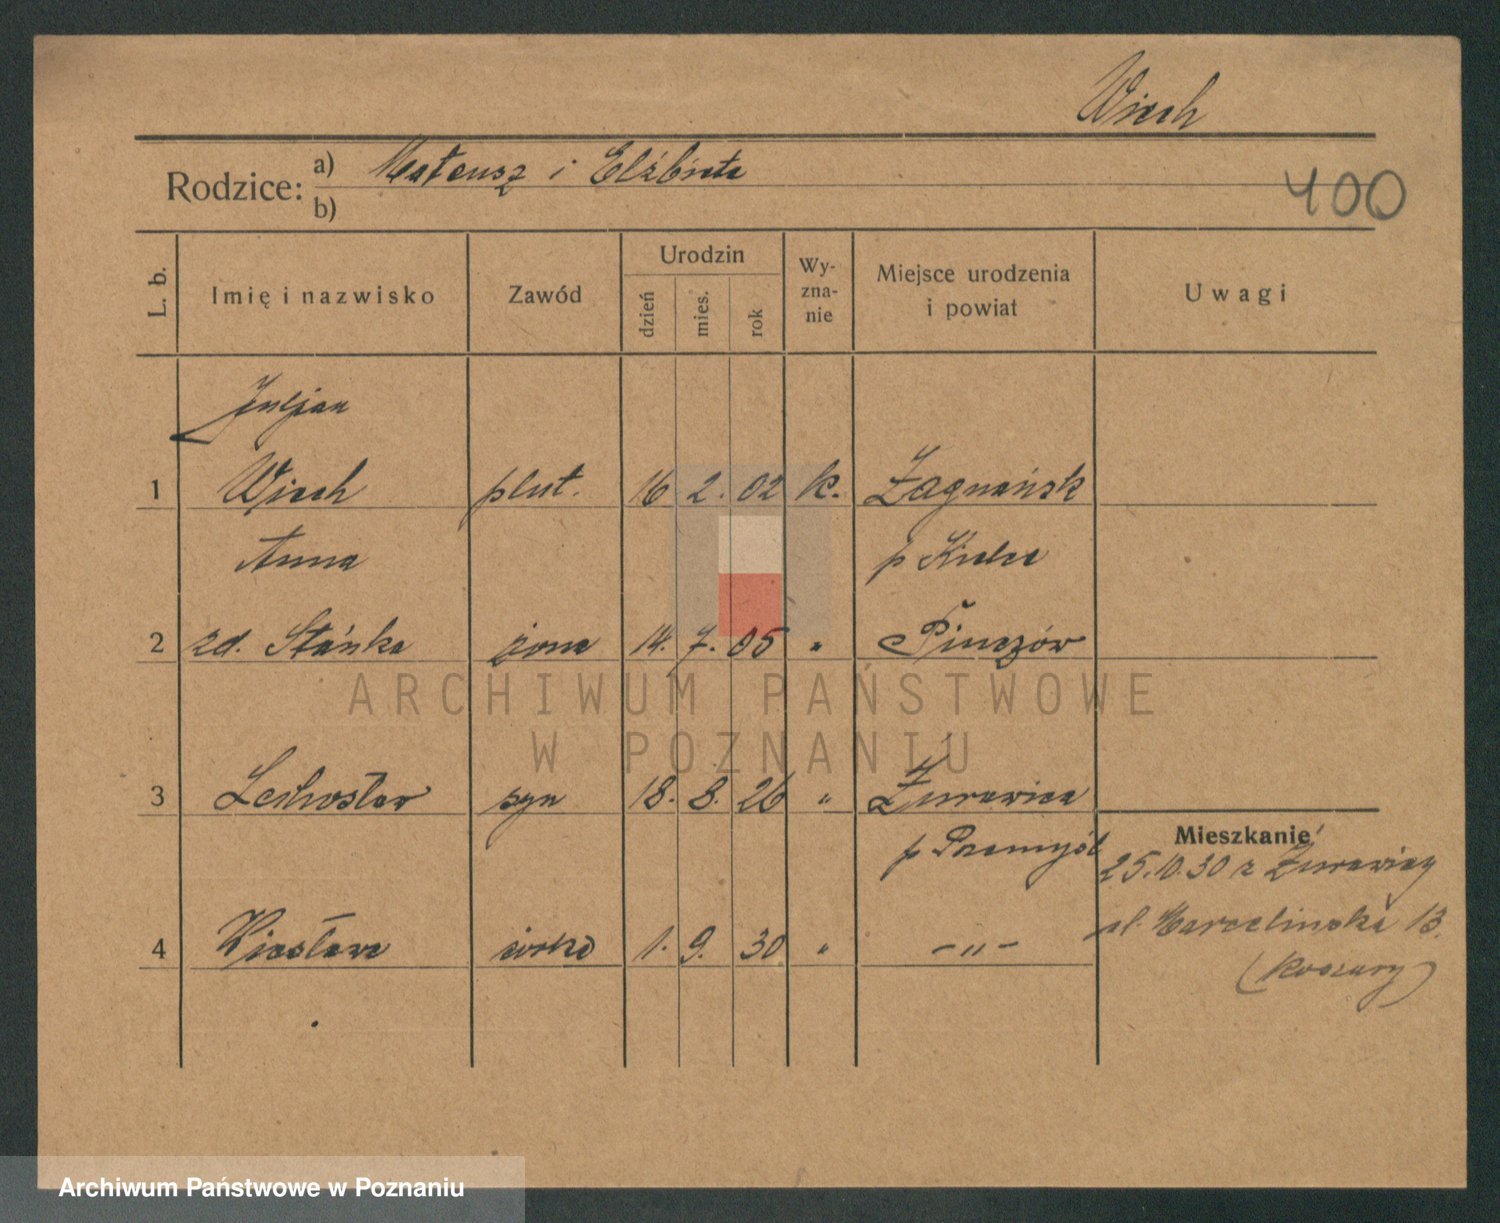 Wiech
Rodzice: a) Mateusz i Elżbieta
b)
400
L. b. Imię i nazwisko Zawód Urodzin dzień mies. rok Wy-zna-nie Miejsce urodzenia i powiat Uwagi
Juljan
1 Wiech plut. 16 2. 02 k. Zagnańsk
Anna p Kielce
2 zd. Stańka żona 14. 7. 05 " Pińczów
ARCHIWUM PAŃSTWOWE
W POZNANIU
3 Lechosław syn 18. 8. 26 " Żurawica
p Przemyśl
Mieszkanie
25.10.30 z Żurawicy
ul. Marcelińska 13.
4 Wiesława córka 1. 9. 30 " -"-
(Koszary)
Archiwum Państwowe w Poznaniu